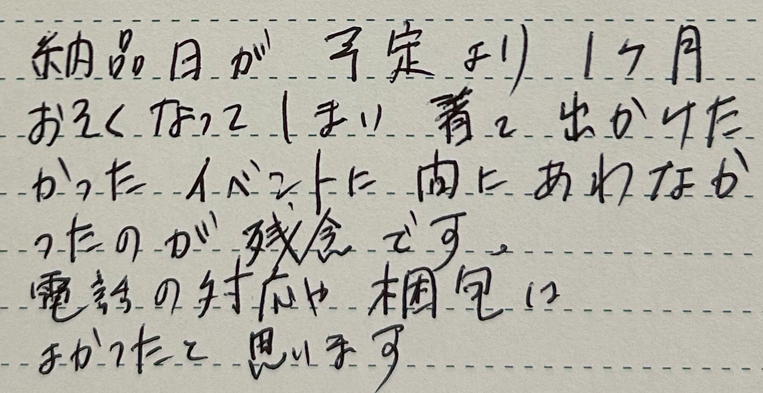 納品日が 予定より 1ヶ月
おそくなってしまい 着て出かけた
かった イベントに 間にあわなか
ったのが 残念です。
電話の対応や 梱包は
よかったと 思います